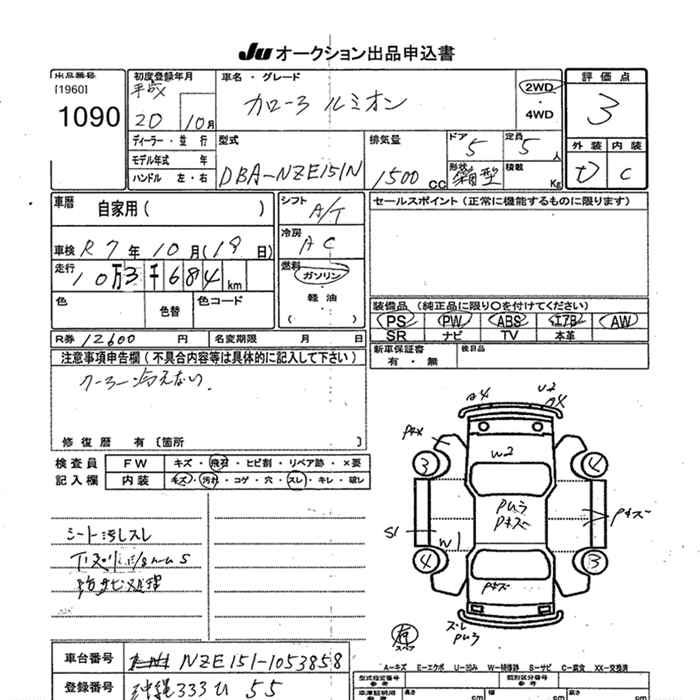 Ju オークション出品申込書
出品番号
[1960]
1090
初度登録年月
平成
20 10月
ディーラー・並行
モデル年式 年
ハンドル 左・右
車名・グレード
カローラ ルミオン
2WD
・
4WD
評価点
3
外装 内装
D C
型式
DBA-NZE151N
排気量
1500 cc
ドア
5
定員
5人
形状
箱型
積載
Kg
車歴
自家用( )
車検 R7年10月(19日)
走行
10万3千684km
色
色替
色コード
シフト
A/T
冷房
AC
燃料
ガソリン
・
軽油
( )
セールスポイント(正常に機能するものに限ります)
装備品(純正品に限り○を付けてください)
PS PW ABS エアB AW
SR ナビ TV 本革
新車保証書
有・無
検目品
R券 12600 円
名変期限 月 日
注意事項申告欄(不具合内容等は具体的に記入して下さい)
クーラー冷えない
修復歴 有[箇所
検査員
記入欄
FW キズ・飛石・ヒビ割・リペア跡・×要
内装 キズ・汚れ・コゲ・穴・スレ・キレ・破レ
シート汚レスレ
防サビ処理
A4
U2
AX
W2
3
4
PUラ
Pキズ
Pキズ
S1
W1
4
3
Pキズ
ズレ
PUラ
有
スペア
A-キズ E-エクボ U-凹み W-補修跡 S-サビ C-腐食 XX-交換済
車台番号
NZE151-1053858
登録番号
沖縄333U 55
型式指定番号
参考
類別区分番号
参考
長さ
幅
高さ
cm cm cm